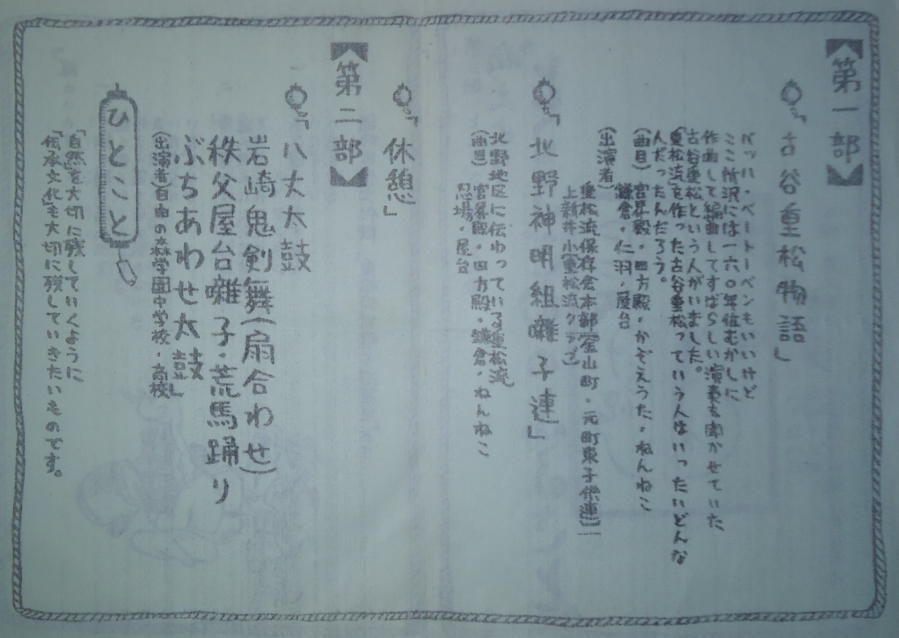 【第一部】
「古谷重松物語」
バッハ・ベートーベンもいいけど
ここ所沢には一六〇年位むかしに
作曲して編曲してすばらしい演奏を聞かせていた
古谷重松という人がいました。
重松流を作った古谷重松っていう人はいったいどんな
人だったんだろう。
(曲目)宮昇殿・四方殿・かぞえうた・ねんねこ
鎌倉・仁羽・屋台
(出演者)
重松流保存会本部(金山町・元町東子供連)
上新井小(重松流クラブ)
「北野神明組囃子連」
北野地区に伝わっている重松流
(曲目)宮昇殿・四方殿・鎌倉・ねんねこ
忍場・屋台
「休憩」
【第二部】
「八丈太鼓
岩崎鬼剣舞(扇合わせ)
秩父屋台囃子・荒馬踊り
ぶちあわせ太鼓」
(出演者)自由の森学園中学校・高校
ひとこと
「自然を大切に残していくように
「伝承文化も大切に残していきたいものです。